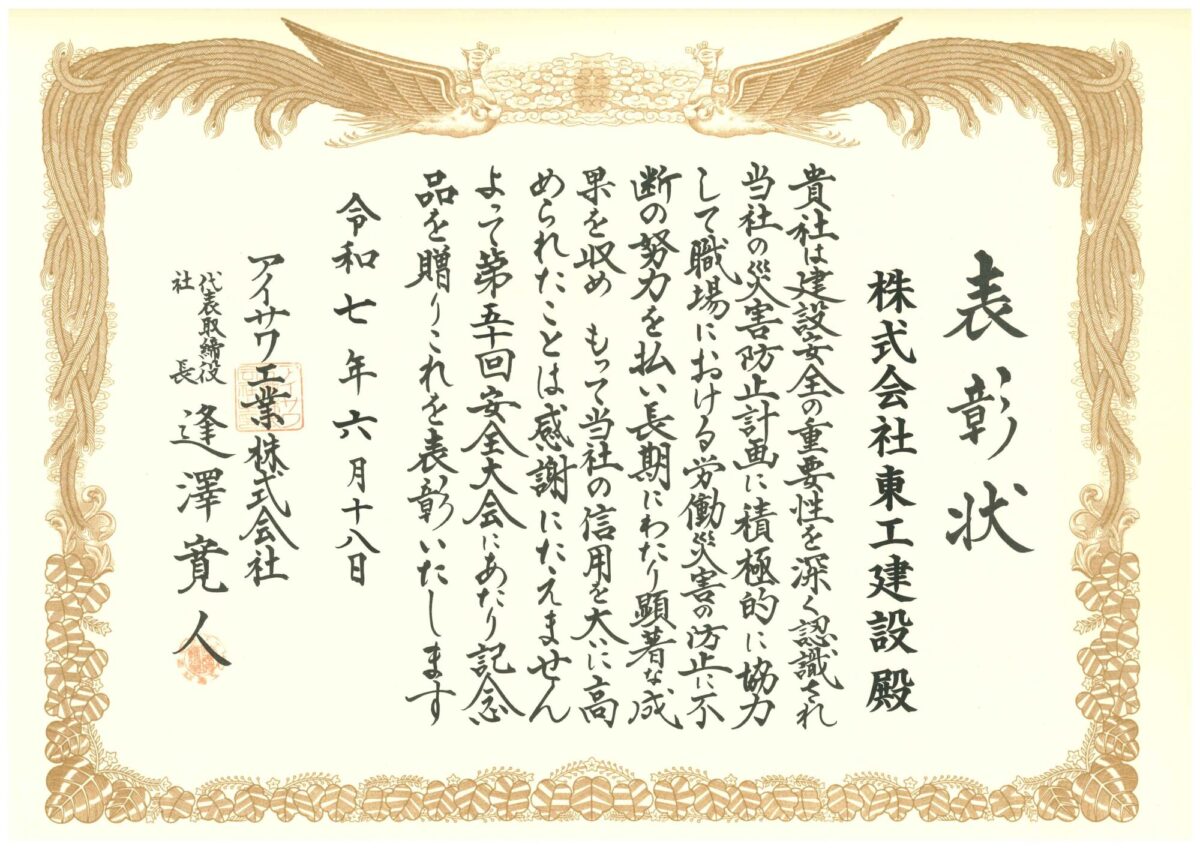 表彰状
株式会社東工建設殿
貴社は建設安全の重要性を深く認識され
当社の災害防止計画に積極的に協力
して職場における労働災害の防止に不
断の努力を払い長期にわたり顕著な成
果を収め もって当社の信用を大いに高
められたことは感謝にたえません
よって第五十回安全大会にあたり記念
品を贈りこれを表彰いたします
令和七年六月十八日
アイサワ工業株式会社
代表取締役
社長
逢澤寛人